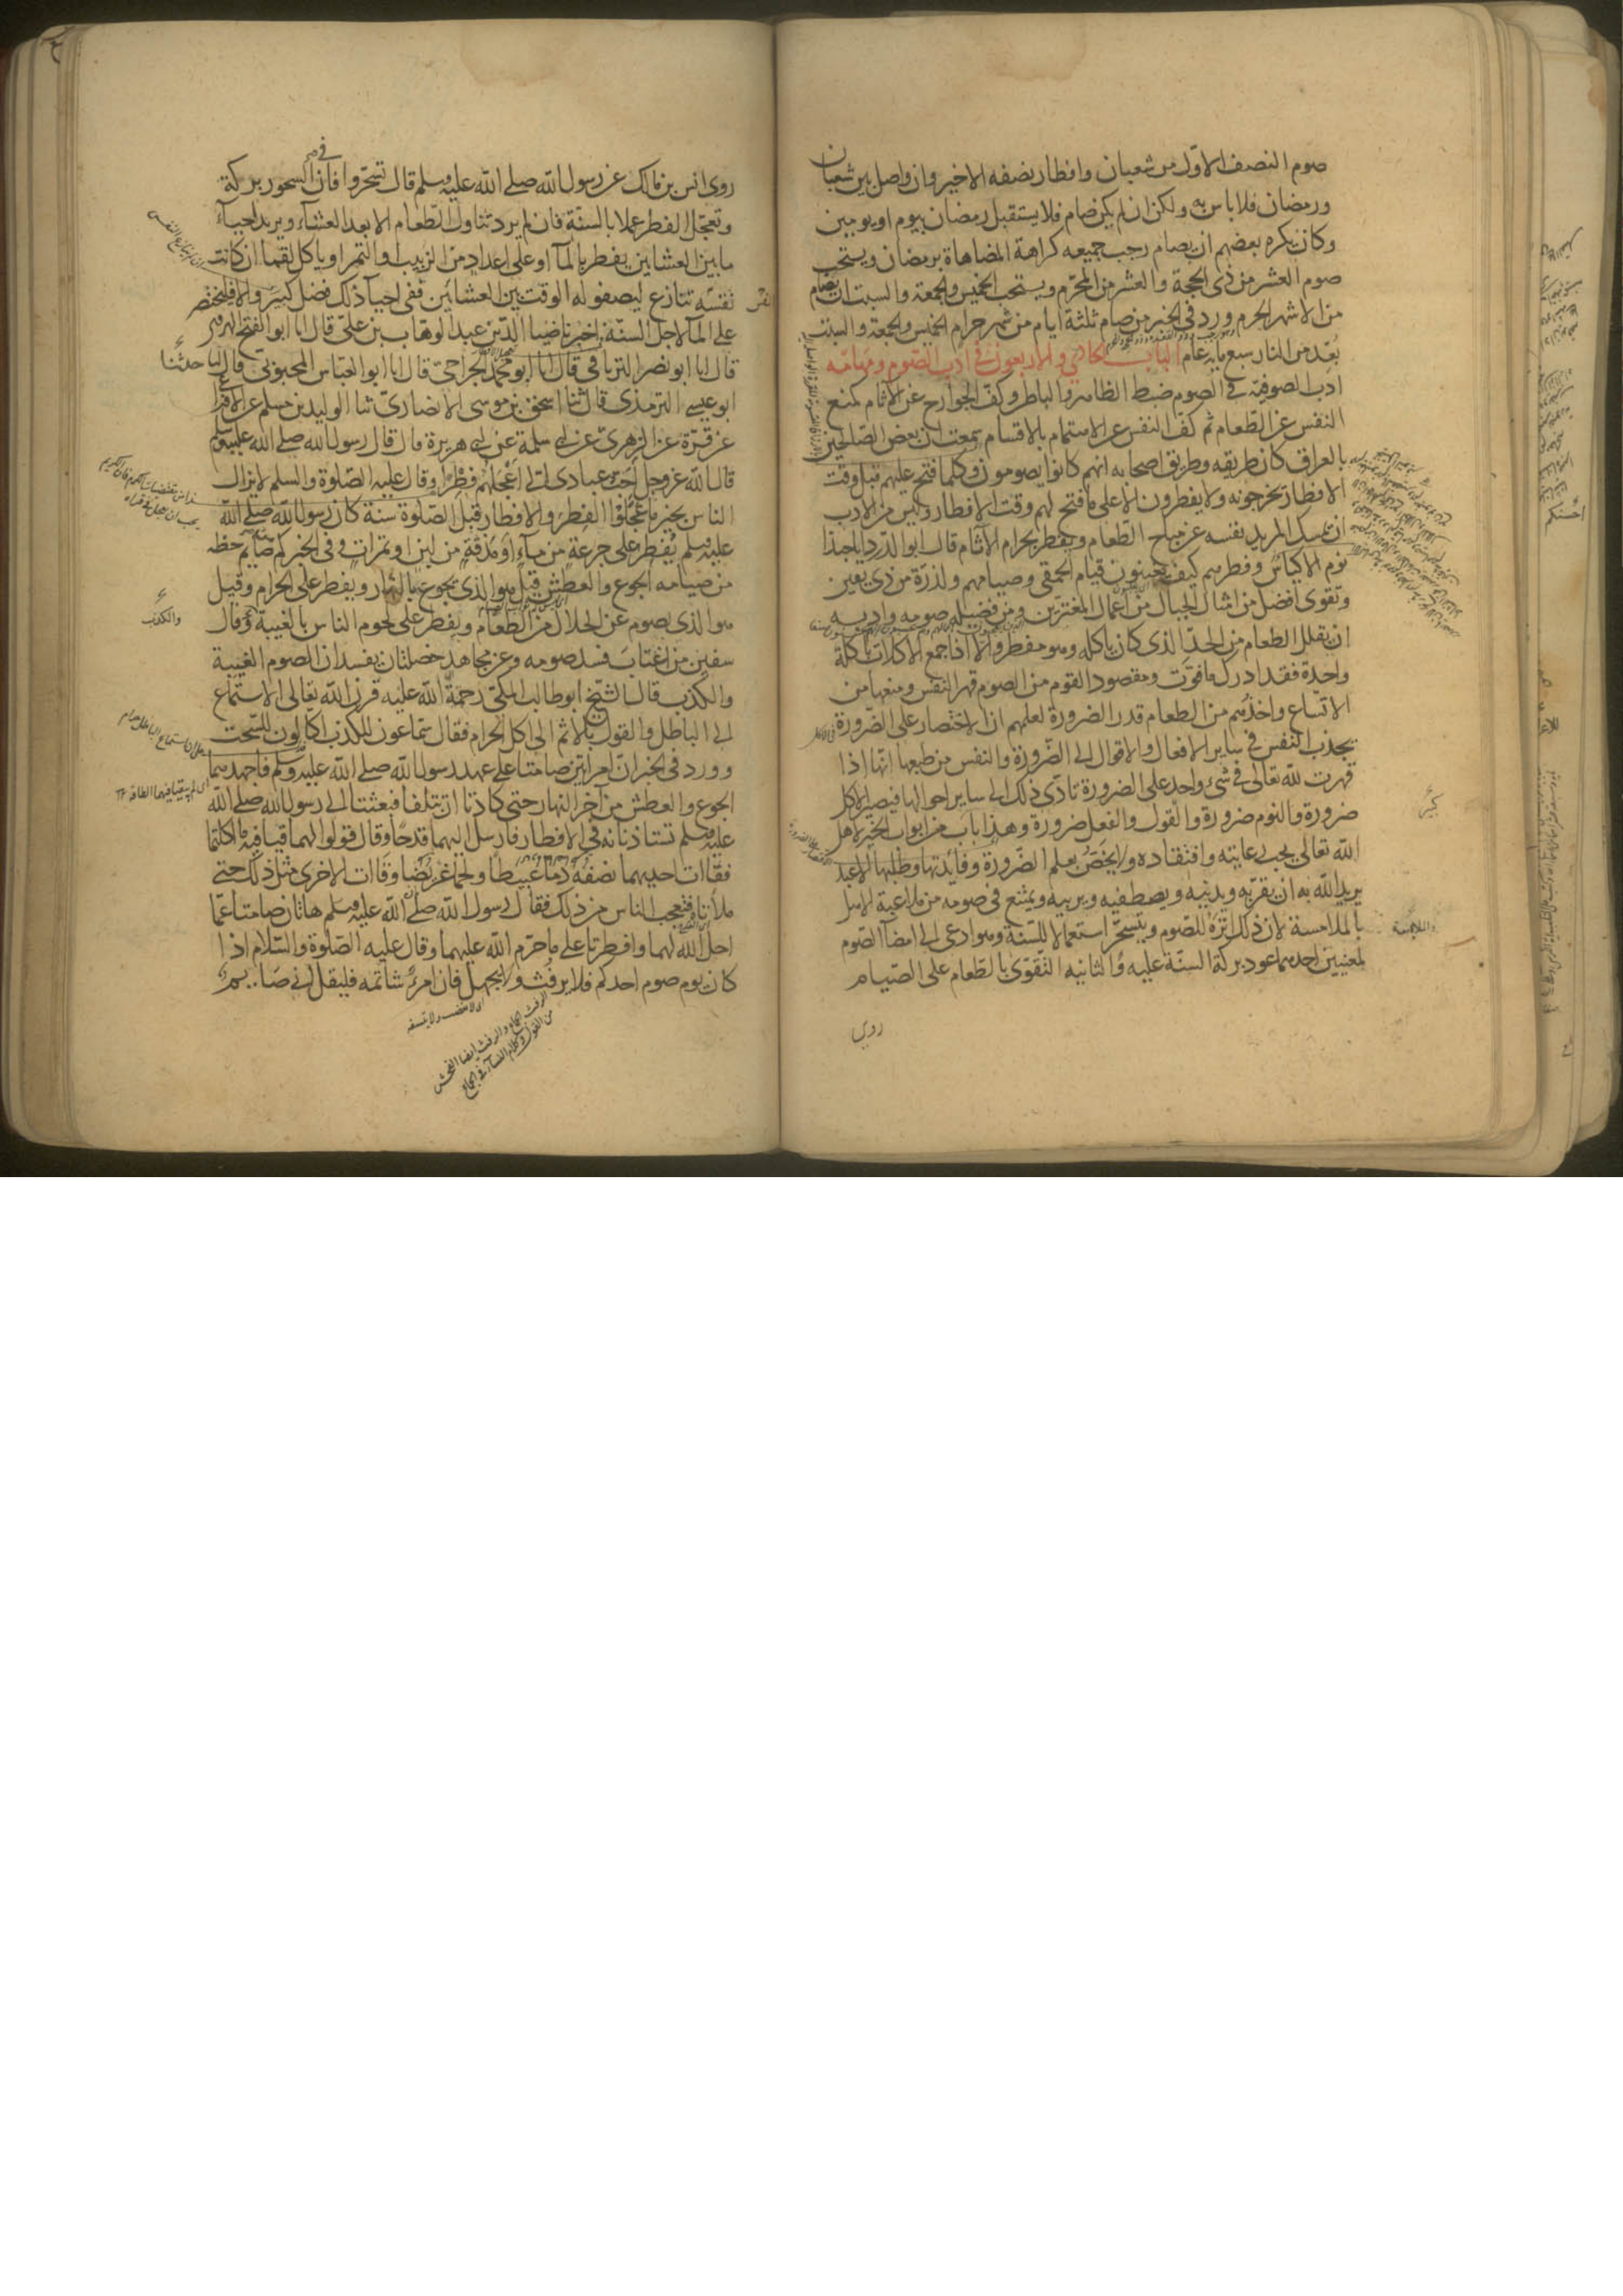 صوم النصف الاوّل من شعبان وافطار نصفه الاخير وان واصل بين شعبان
ورمضان فلا باس به ولكن ان لم يكن صام فلا يستقبل رمضان بيوم او يومين
وكان يكره بعضهم ان يصام رجب جميعه كراهة المضاهاة برمضان ويستحب
صوم العشر من ذى الحجة والعشر من المحرم ويستحب الخميس والجمعة والسبت ان يصام
من الاشهر الحرم وورد فى الخبر من صام ثلثة ايام من شهر حرام الخميس والجمعة والسبت
بعد من النار سبع ماية عام الباب الحادي والاربعون في ادب الصوم ومهامّه
ادب الصوفية فى الصوم ضبط الظاهر والباطن وكف الجوارح عن الآثام كمنع
النفس عن الطعام ثم كف النفس عن الاهتمام بالاقسام سمعت ان بعض الصالحين
بالعراق كان طريقه وطريق اصحابه انهم كانوا يصومون وكلما فتح عليهم قبل وقت
الافطار يخرجونه ولا يفطرون الا على ما فتح لهم وقت الافطار وليس من الادب
ان يمسك المريد نفسه عن مباح الطعام ويفطر بحرام الآثام قال ابو الدردا يا حبذا
نوم الاكياس وفطرهم كيف يغبنون قيام الحمقى وصيامهم ولذرة من ذى يقين
وتقوى افضل من امثال الجبال من اعمال المغترين ومن فضيلة صومه وادبه
ان يقلل الطعام من الحد الذى كان ياكله وهو مفطر والا اذا جمع الاكلات باكلة
واحدة فقد ادرك ما فوّت ومقصود القوم من الصوم قهر النفس ومنعها من
الاتساع واخذهم من الطعام قدر الضرورة لعلمهم ان الاختصار على الضرورة
يجذب النفس فى ساير الافعال والاقوال الى الضرورة والنفس من طبعها انها اذا
قهرت لله تعالى فى شىء واحد على الضرورة تادّى ذلك الى ساير احوالها فيصير الاكل
ضرورة والنوم ضرورة والقول والفعل ضرورة وهذا باب من ابواب الخير لاهل
الله تعالى يجب رعايته وافتقاده ولا يخص بعلم الضرورة وفائدتها وطلبها الا عبد
يريد الله به ان يقربه ويدنيه ويصطفيه ويربيه ويمتنع فى صومه من ملاعبة الاهل
بالملامسة لان ذلك انزه للصوم ويتسحر استعمالا للسنة وهو ادعى الى امضا الصوم
لمعنيين احدهما عود بركة السنة عليه والثانيه التقوى بالطعام على الصيام
روى
روى انس بن مالك عن رسول الله صلى الله عليه وسلم قال تسحّروا فان فى السحور بركة
وتعجّل الفطر عملا بالسنة فان لم يرد تناول الطعام الا بعد العشاء ويريد احياء
ما بين العشاين يفطر بالمآ او على اعداد من الزبيب والتمر او ياكل لقما ان كانت
نفسه تنازع ليصفو له الوقت بين العشائين ففى احياء ذلك فضل كبير والا فليختصر
على المآ لاجل السنة اخبرنا ضياء الدين عبد الوهاب بن على قال انا ابو الفتح الهروى
قال انا ابو نصر الترياقى قال انا ابو محمد الجراحى قال انا ابو العباس المحبوبى قال انا حدثنا
ابو عيسى الترمذى قال ثنا اسحق بن موسى الانصارى ثنا الوليد بن مسلم عن الاوزاعى
عن قرّة عن الزهرى عن ابى سلمة عن ابى هريرة قال قال رسول الله صلى الله عليه وسلم
قال الله عز وجل احبّ عبادى الى اعجلهم فطرا وقال عليه الصلوة والسلم لا يزال
الناس بخير ما عجّلوا الفطر والافطار قبل الصلوة سنة كان رسول الله صلى الله
عليه وسلم يفطر على جرعة من ماء او مذقة من لبن او تمرات وفى الخبر كم صايم حظه
من صيامه الجوع والعطش قيل هو الذى يجوع بالنهار ويفطر على الحرام وقيل
هو الذى يصوم عن الحلال من الطعام ويفطر على لحوم الناس بالغيبة وقال
والكذب
سفين من اغتاب فسد صومه وعن مجاهد خصلتان يفسدان الصوم الغيبة
والكذب قال الشيخ ابو طالب المكى رحمة الله عليه قرن الله تعالى الاستماع
الى الباطل والقول بالاثم الى اكل الحرام فقال سماعون للكذب اكالون للسحت
وورد فى الخبر ان امراتين صامتا على عهد رسول الله صلى الله عليه وسلم فاجهدهما
الجوع والعطش من آخر النهار حتى كادتا ان تتلفا فبعثتا الى رسول الله صلى الله
عليه وسلم تستاذنانه فى الافطار فارسل اليهما قدحا وقال قولوا لهما قيئا فيه ما اكلتما
فقاءت احديهما نصفه دما عبيطا ولحما غريضا وقاءت الاخرى مثل ذلك حتى
ملأتاه فتعجب الناس من ذلك فقال رسول الله صلى الله عليه وسلم هاتان صامتا عما
احل الله لهما وافطرتا على ما حرم الله عليهما وقال عليه الصلوة والسلام اذا
كان يوم صوم احدكم فلا يرفث ولا يجهل فان امرء شاتمه فليقل انى صايم